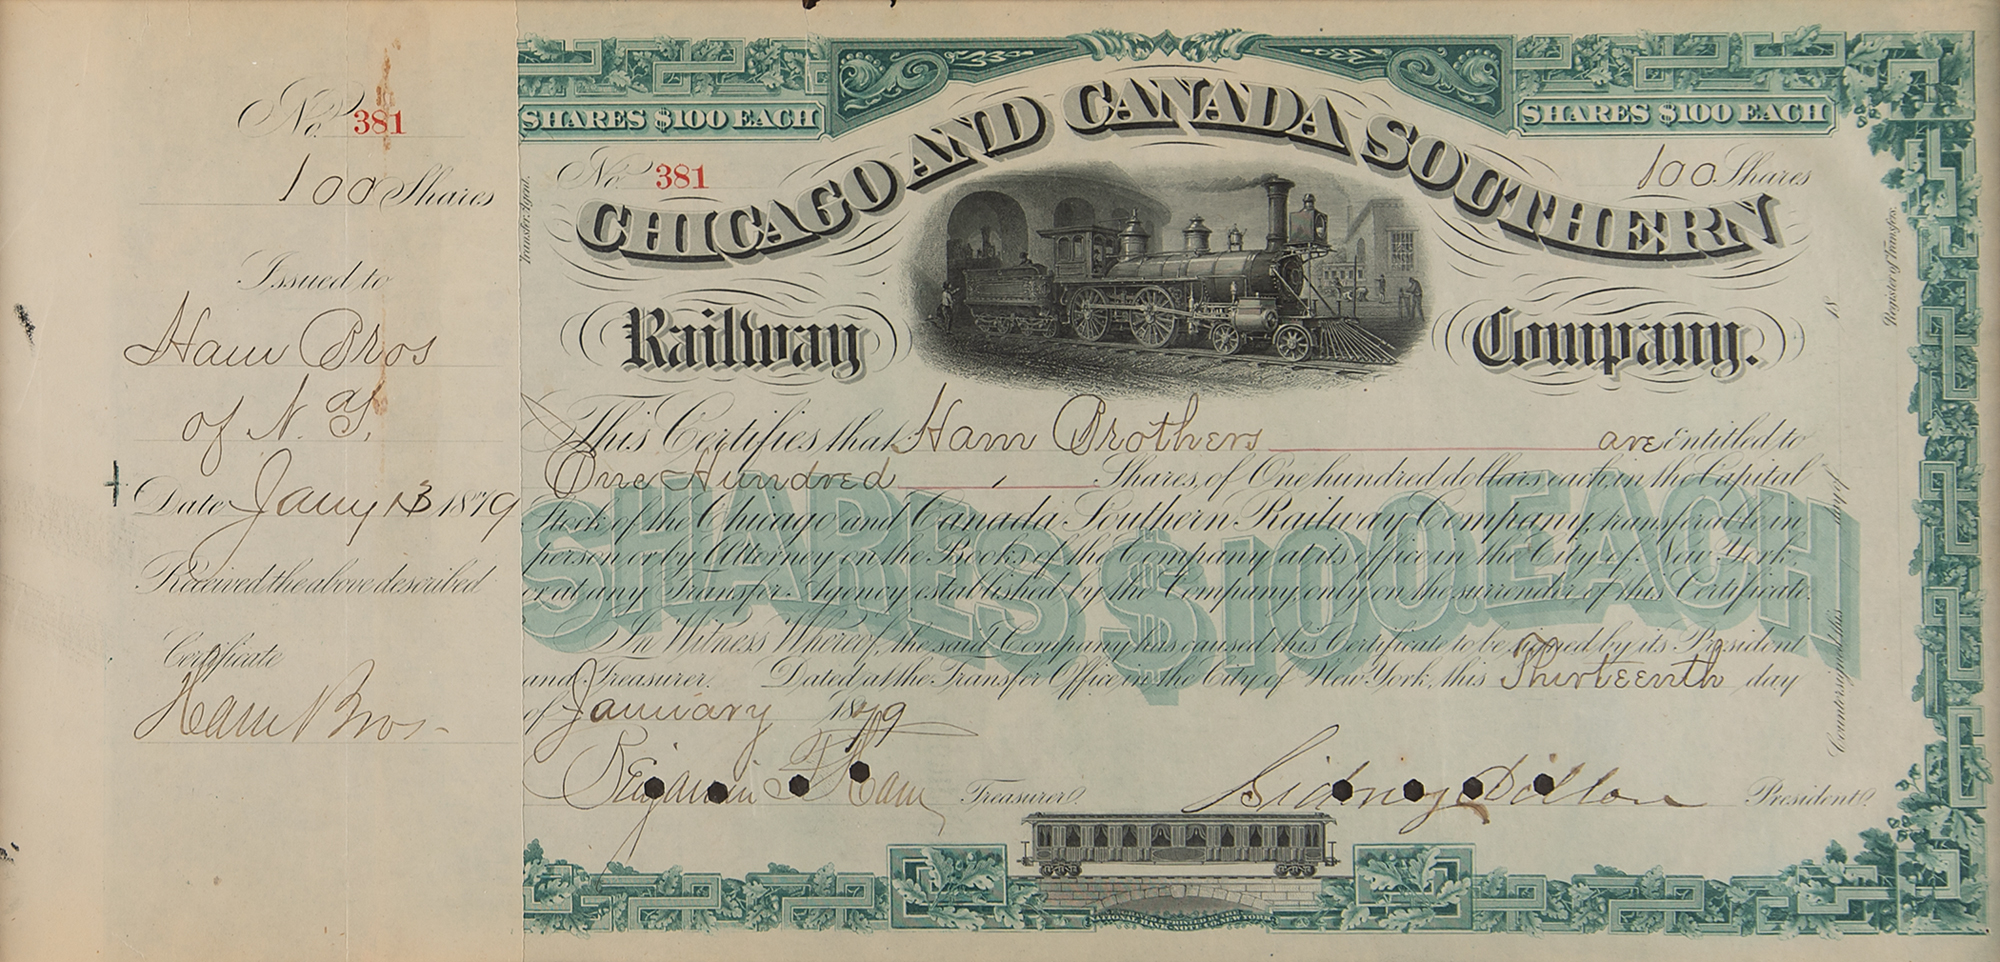 No. 381
100 Shares
Issued to
Ham Bros
of N.Y.
Date Jany 13 1879
Received the above described
Certificate
Ham Bros
SHARES $100 EACH
SHARES $100 EACH
Transfer Agent.
No. 381
100 Shares
CHICAGO AND CANADA SOUTHERN
Railway Company.
This Certifies that Ham Brothers are Entitled to
One Hundred Shares, of One hundred dollars each, in the Capital
Stock of the Chicago and Canada Southern Railway Company, transferable in
person or by Attorney on the Books of the Company at its office in the City of New York
or at any Transfer Agency established by the Company, only on the surrender of this Certificate.
SHARES $100. EACH
In Witness Whereof, the said Company has caused this Certificate to be signed by its President
and Treasurer. Dated at the Transfer Office in the City of New York, this Thirteenth day
of January 1879
Benjamin F Ham Treasurer. Sidney Dillon President.
Countersigned this day of 18
Register of Transfers.
NATIONAL BANK-NOTE CO. NEW YORK